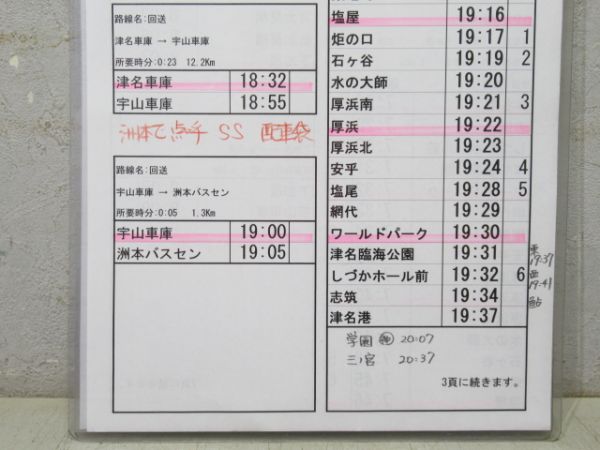 路線名:回送
津名車庫 → 宇山車庫
所要時分:0:23 12.2Km
津名車庫 18:32
宇山車庫 18:55
洲本で点呼 SS 配車袋
路線名:回送
宇山車庫 → 洲本バスセン
所要時分:0:05 1.3Km
宇山車庫 19:00
洲本バスセン 19:05
塩屋 19:16
炬の口 19:17 1
石ヶ谷 19:19 2
水の大師 19:20
厚浜南 19:21 3
厚浜 19:22
厚浜北 19:23
安乎 19:24 4
塩尾 19:28 5
網代 19:29
ワールドパーク 19:30
津名臨海公園 19:31
しづかホール前 19:32 6
志筑 19:34
津名港 19:37
19:37
19:41
学園 20:07
三ノ宮 20:37
3頁に続きます。